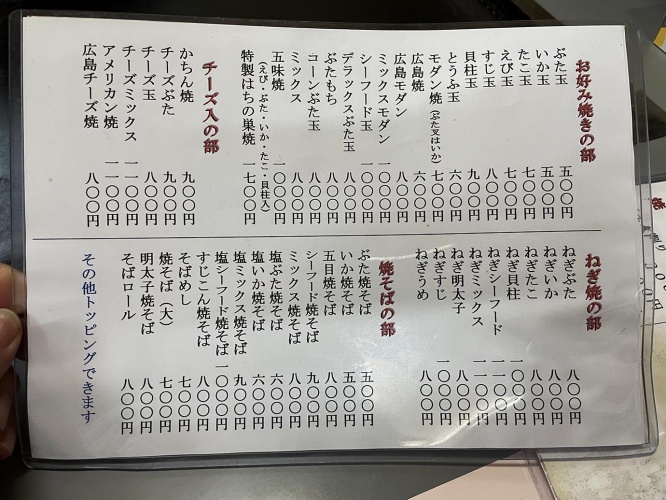 お好み焼きの部
ぶた玉 五〇〇円
いか玉 五〇〇円
たこ玉 七〇〇円
えび玉 七〇〇円
すじ玉 八〇〇円
貝柱玉 九〇〇円
とうふ玉 六〇〇円
モダン焼(ぶた又はいか) 七〇〇円
広島焼 六〇〇円
広島モダン 八〇〇円
ミックスモダン 一〇〇〇円
シーフード玉 一〇〇〇円
デラックスぶた玉 八〇〇円
ぶたもち 八〇〇円
コーンぶた玉 八〇〇円
ミックス 八〇〇円
五味焼 一〇〇〇円
(えび・ぶた・いか・たこ・貝柱入)
特製はちの巣焼 一七〇〇円
チーズ入の部
かちん焼 九〇〇円
チーズぶた 九〇〇円
チーズ玉 八〇〇円
チーズミックス 一一〇〇円
アメリカン焼 一一〇〇円
広島チーズ焼 八〇〇円
ねぎ焼の部
ねぎぶた 八〇〇円
ねぎいか 八〇〇円
ねぎたこ 八〇〇円
ねぎ貝柱 一〇〇〇円
ねぎシーフード 一一〇〇円
ねぎミックス 一一〇〇円
ねぎ明太子 八〇〇円
ねぎすじ 一〇〇〇円
ねぎうめ 八〇〇円
焼そばの部
ぶた焼そば 五〇〇円
いか焼そば 五〇〇円
五目焼そば 八〇〇円
シーフード焼そば 九〇〇円
ミックス焼そば 八〇〇円
塩ぶた焼そば 六〇〇円
塩いか焼そば 六〇〇円
塩ミックス焼そば 九〇〇円
塩シーフード焼そば 一〇〇〇円
すじこん焼そば 八〇〇円
そばめし 七〇〇円
焼そば(大) 七〇〇円
明太子焼そば 八〇〇円
そばロール 八〇〇円
その他トッピングできます